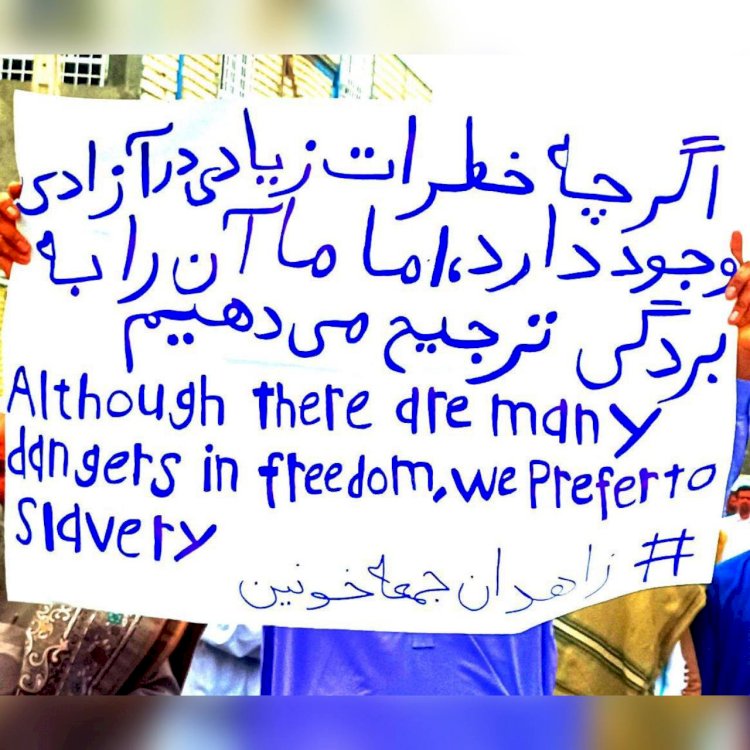 اگرچه خطرات زیادی در آزادی
وجود دارد، اما ما آن را به
بردگی ترجیح می‌دهیم
Although there are many
dangers in freedom, we Prefer to
Slavery
# زاهدان جمعه خونین